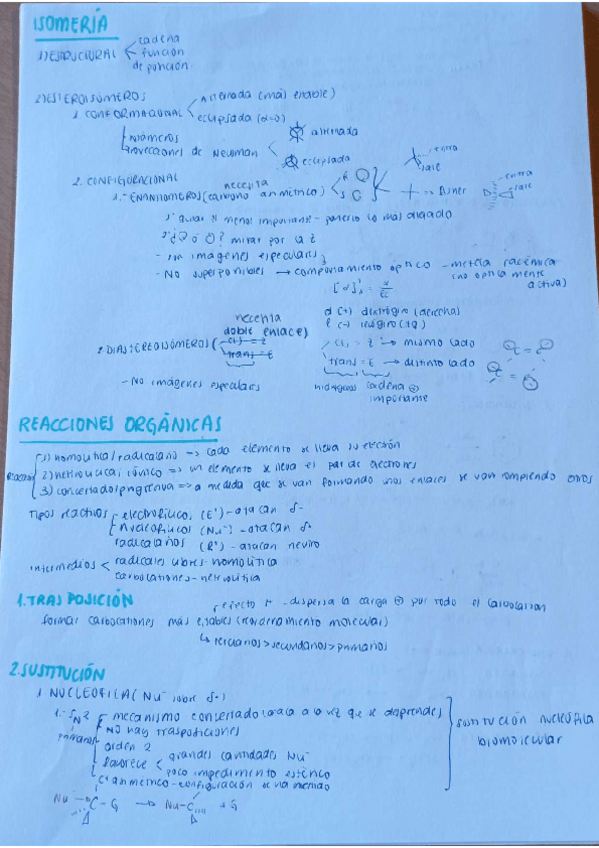 ISOMERÍA
1) ESTRUCTURAL
cadena
función
de posición
2) ESTEROISÓMEROS
1. CONFORMACIONAL
alternada (más estable)
eclipsada (α=0)
proyecciones de Newman
alternada
eclipsada
entra
sale
2. CONFIGURACIONAL
necesita
1.- ENANTIÓMEROS (carbono asimétrico)
R
S
Fisher
entra
sale
1º quitar el menos importante - ponerlo lo más alejado
- son imágenes especulares
- No superponibles → comportamiento óptico - mezcla racémica
(no óptica mente
activa)
d (+) dextrógiro (derecha)
l (-) levógiro (izq)
necesita
doble enlace)
2. DIASTEREOISÓMEROS (
cis = Z
trans = E
cis = Z → mismo lado
trans = E → distinto lado
- No imágenes especulares
hidrógenos cadena +
importante
REACCIONES ORGÁNICAS
1) homolítica/radicalaria => cada elemento se lleva su electrón
2) heterolítica, iónica => un elemento se lleva el par de electrones
3) concertado/progresiva => a medida que se van formando unos enlaces se van rompiendo otros
Tipos reactivos
electrofílicos (E⁺) - atacan δ-
nucleofílicos (Nu⁻) - atacan δ+
radicalarios (R°) - atacan neutro
intermedios
radicales libres - homolítica
carbocationes - heterolítica
1. TRASPOSICIÓN
efecto I+ - dispersa la carga ⊕ por todo el carbocation
formar carbocationes más estables (reordenamiento molecular)
↳ terciarios > secundarios > primarios
2. SUSTITUCIÓN
1. NUCLEÓFILA (Nu⁻ sobre δ+)
1.- SN2
primarios
mecanismo concertado (ataca a la vez que se desprende)
NO hay trasposiciones
orden 2
favorece
grandes cantidades Nu⁻
poco impedimento estérico
C asimétrico - configuración se va invirtiendo
sustitución nucleófila
bimolecular
Nu⁻ C - G → Nu - C + G